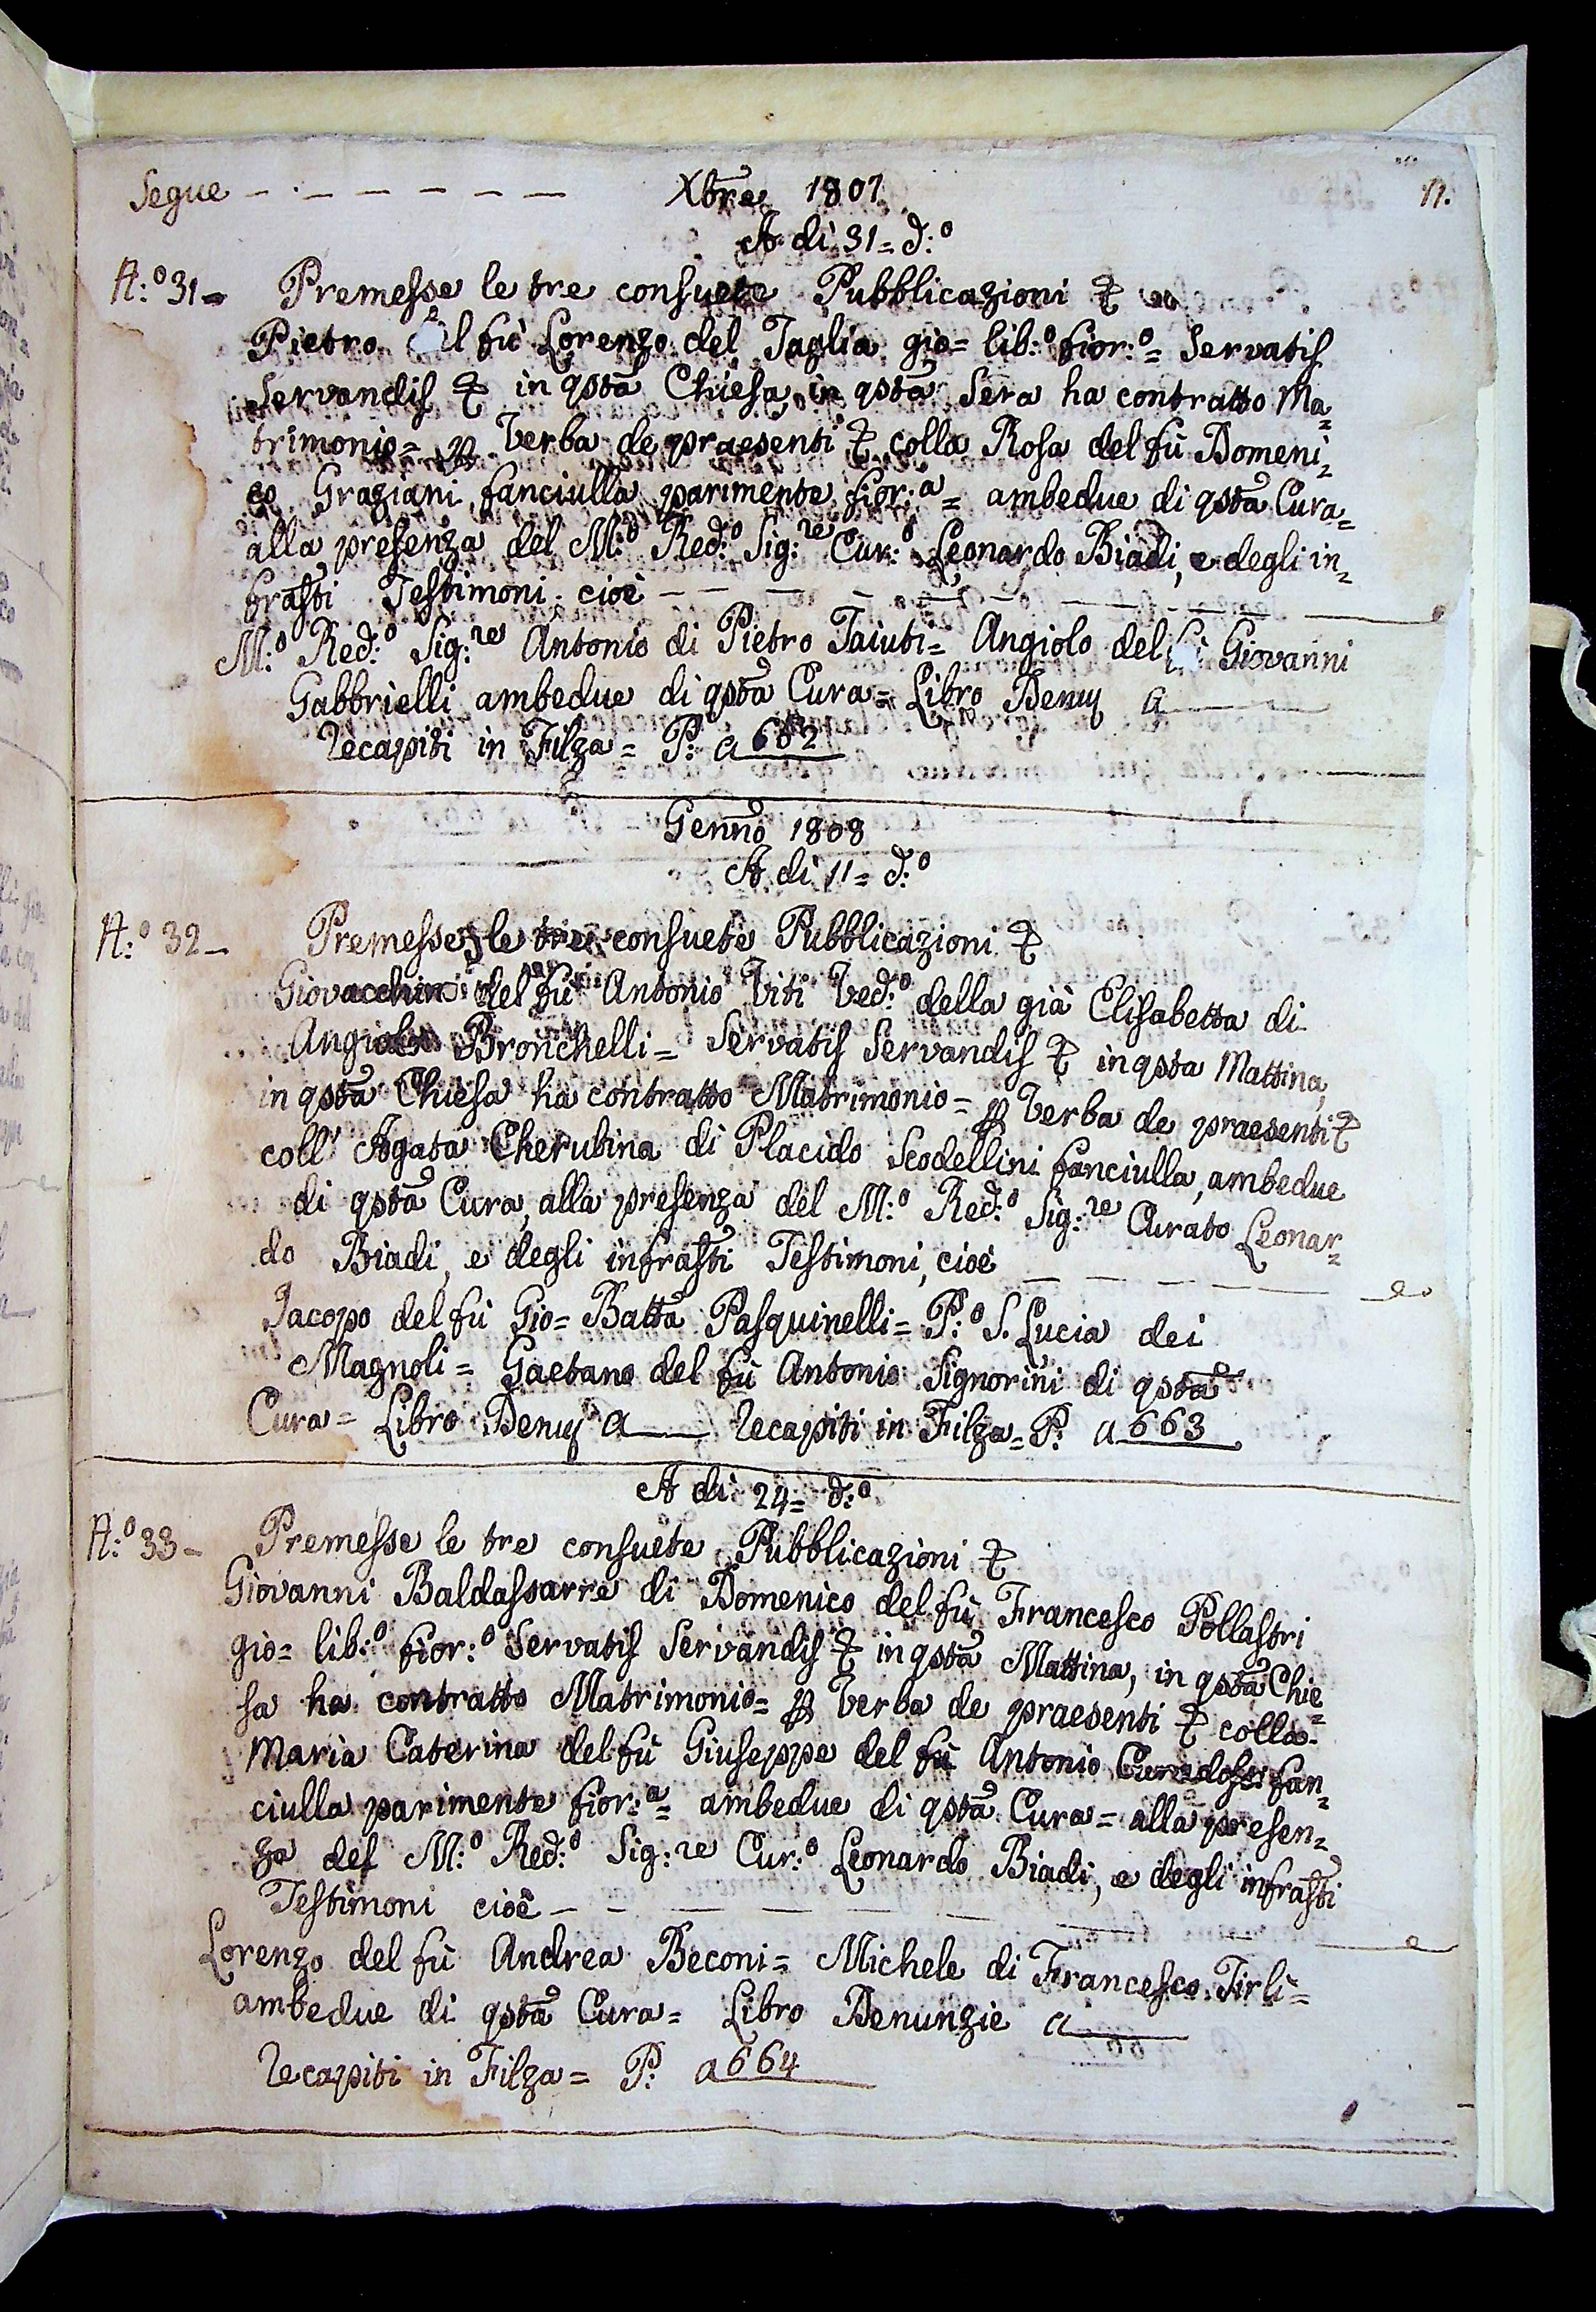 Segue - - - - - - Xbre 1807 11.
A di 31= d:o
N:o 31= Premesse le tre consuete Pubblicazioni &
Pietro del fù Lorenzo del Taglia gio= lib:o fior:o= Servatis
Servandis & in qsta Chiesa, in qsta Sera ha contratto Ma=
trimonio= p Verba de praesenti & colla Rosa del fù Domeni=
co Graziani fanciulla parimente fior:a= ambedue di qsta Cura=
alla presenza del M:o Red:o Sig:re Cur:o Leonardo Biadi, e degli in=
frasti Testimoni cioè
M:o Red:o Sig:re Antonio di Pietro Taiuti= Angiolo del fù Giovanni
Gabbrielli ambedue di qsta Cura= Libro Denuz a
Recapiti in Filza= P: a 662
Genno 1808
A di 11= d:o
N:o 32- Premesse le tre consuete Pubblicazioni &
Giovacchino del fù Antonio Viti Ved:o della già Elisabetta di
Angiolo Bronchelli= Servatis Servandis & in qsta Mattina,
in qsta Chiesa ha contratto Matrimonio= p Verba de praesenti &
coll' Agata Cherubina di Placido Scodellini fanciulla, ambedue
di qsta Cura, alla presenza del M:o Red:o Sig:re Curato Leonar=
do Biadi, e degli infrasti Testimoni, cioè
Jacopo del fù Gio= Batta Pasquinelli= P:o S. Lucia dei
Magnoli= Gaetano del fù Antonio Signorini di qsta
Cura= Libro Denuz a Recapiti in Filza= P: a 663
A di 24= d:o
N:o 33- Premesse le tre consuete Pubblicazioni &
Giovanni Baldassarre di Domenico del fù Francesco Pollastri
gio= lib:o fior:o Servatis Servandis & in qsta Mattina, in qsta Chie=
sa ha contratto Matrimonio= p Verba de praesenti & colla
Maria Caterina del fù Giuseppe del fù Antonio fan=
ciulla parimente fior:a= ambedue di qsta Cura= alla presen=
za del M:o Red:o Sig:re Cur:o Leonardo Biadi, e degli infrasti
Testimoni cioè
Lorenzo del fù Andrea Beconi= Michele di Francesco Tirli=
ambedue di qsta Cura= Libro Denunzie a
Recapiti in Filza= P: a 664